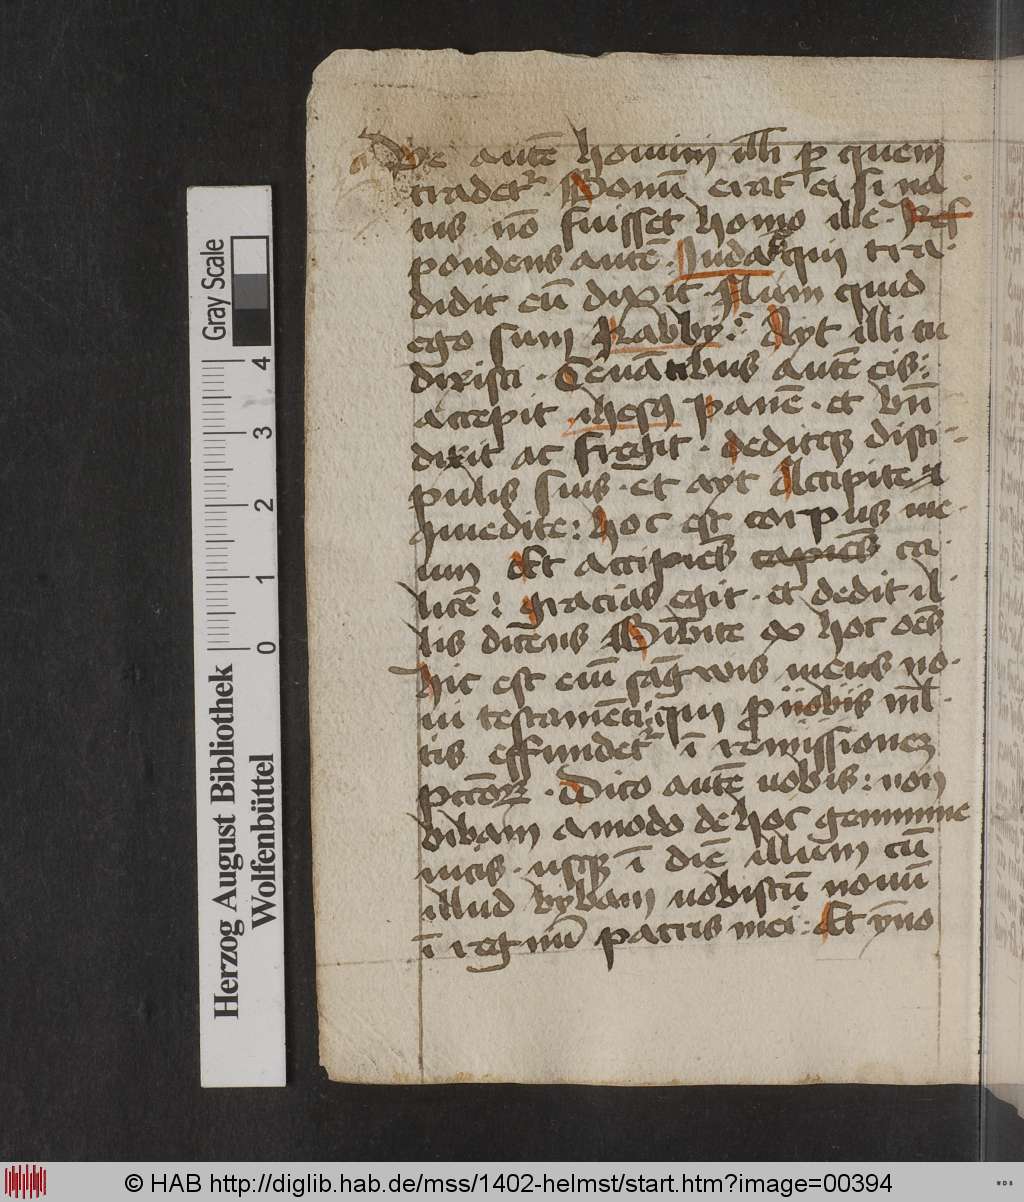 Ve autē homini illi ꝑ quem
tradetᷣ. Bonū erat ei si na
tus nō fuisset homo ille. Res
pondens autē. Iudas qui tra
didit eū dixit. Num quid
ego sum Rabby: Ayt illi tu
dixisti. Cenātibus autē eis:
accepit ihesꝰ panē. et bn̄
dixit ac fregit. deditqꝫ disci
pulis suis. et ayt Accipite ⁊
comedite: hoc est corpus me
um Et accipiēs capiēs ca
licē: gracias egit. et dedit il
lis dicens Bibite ex hoc oēs
hic est eni᷑ sāgwis meus no
ui testamēti: qui ꝓ uobis ml̄
tis effundetᷣ ī remissioneꝫ
pccōꝝ. Dico autē uobis: non
bibam amodo de hoc genimine
uitis. usqꝫ ī diē illum cū
illud bybam uobiscū nouū
ī regnū patris mei. Et ymo
Gray Scale
4
3
2
1
0
Herzog August Bibliothek
Wolfenbüttel
© HAB http://diglib.hab.de/mss/1402-helmst/start.htm?image=00394